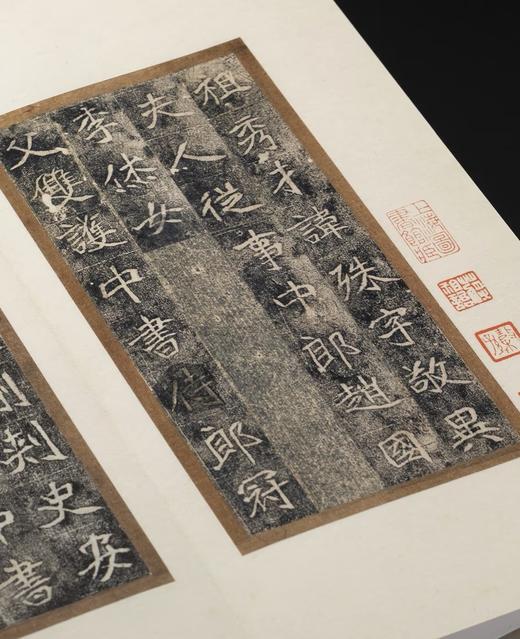 祖秀才諱殊字敬異
夫人從事中郎趙國
李烋女
父雙護中書侍郎冠
刺史安
中書